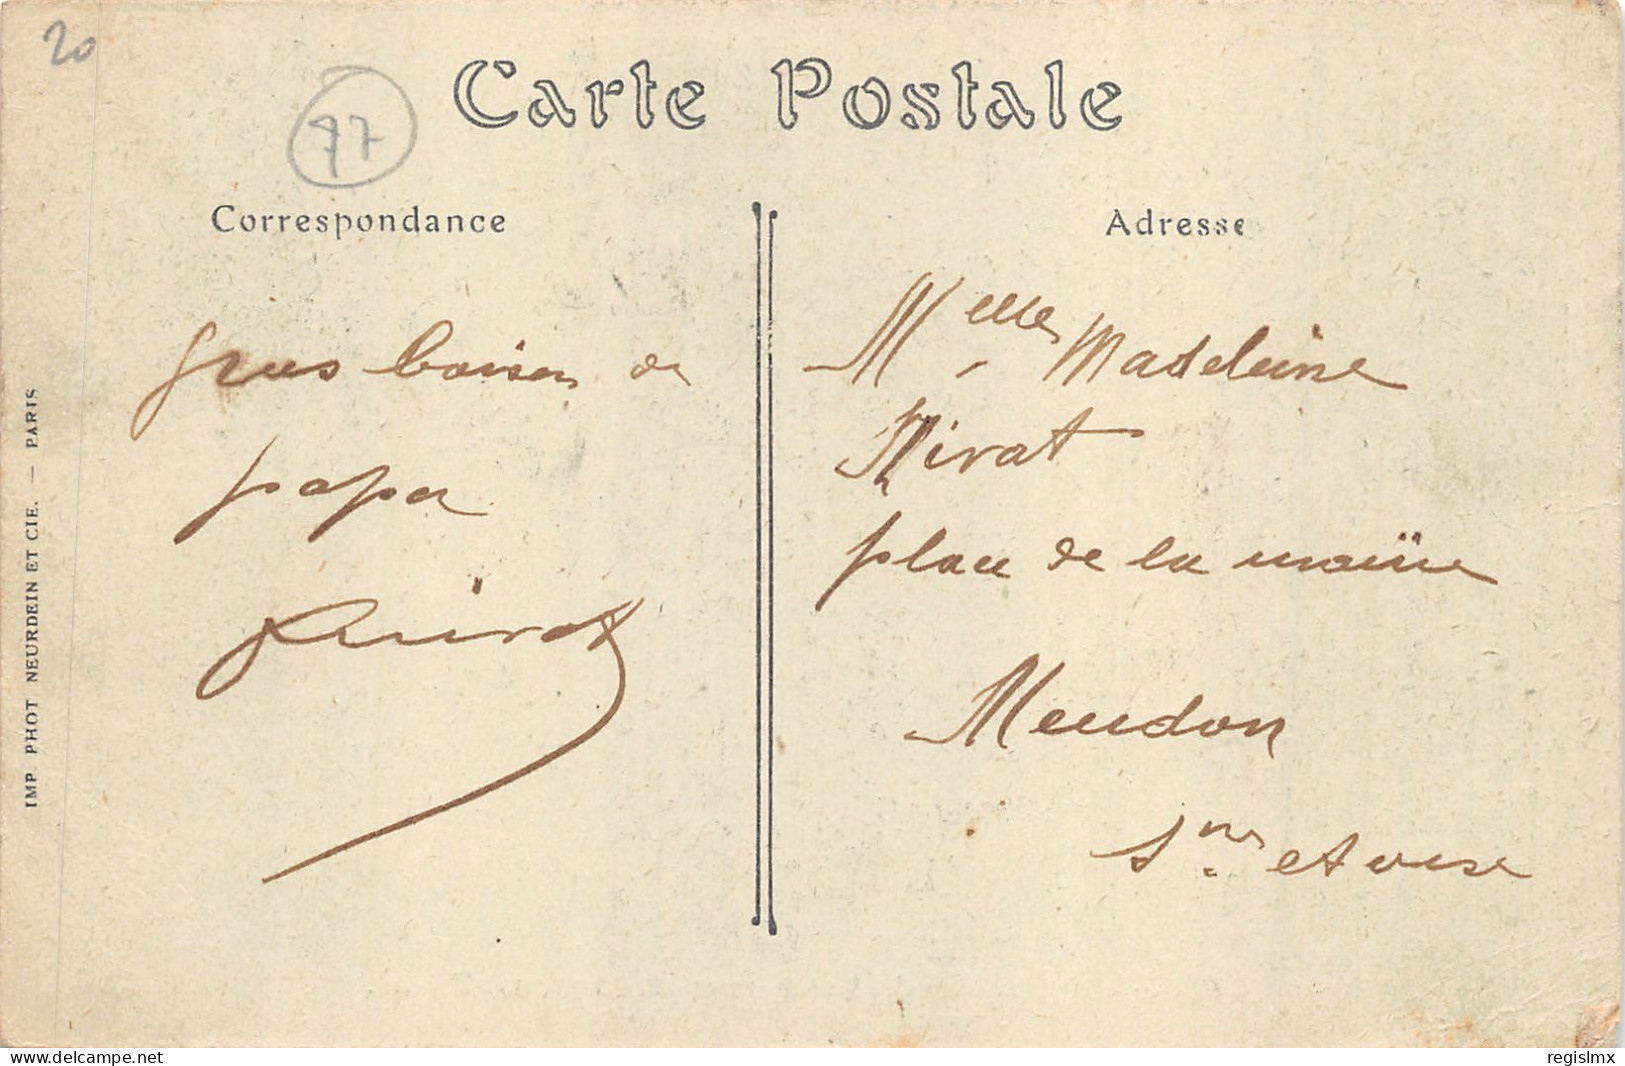 20
77
Carte Postale
Correspondance
Adresse
gros baisers de
papa
Mirat
Melle Madeleine
Mirat
place de la mairie
Meudon
Sne et oise
IMP. PHOT NEURDEIN ET CIE. — PARIS
www.delcampe.net
regislmx